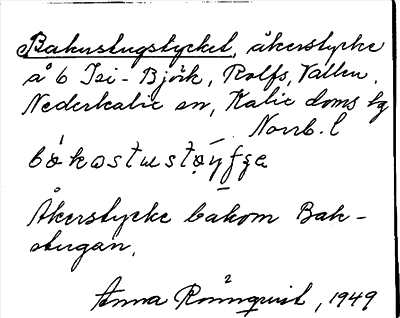 Bakustugstycket, åkerstycke
å 6 Isi-Björk, Rolfs, Vallen,
Nederkalix sn, Kalix doms hg
Norrb. l
Åkerstycke bakom Bak-
stugan.
Anna Rönnqvist, 1949